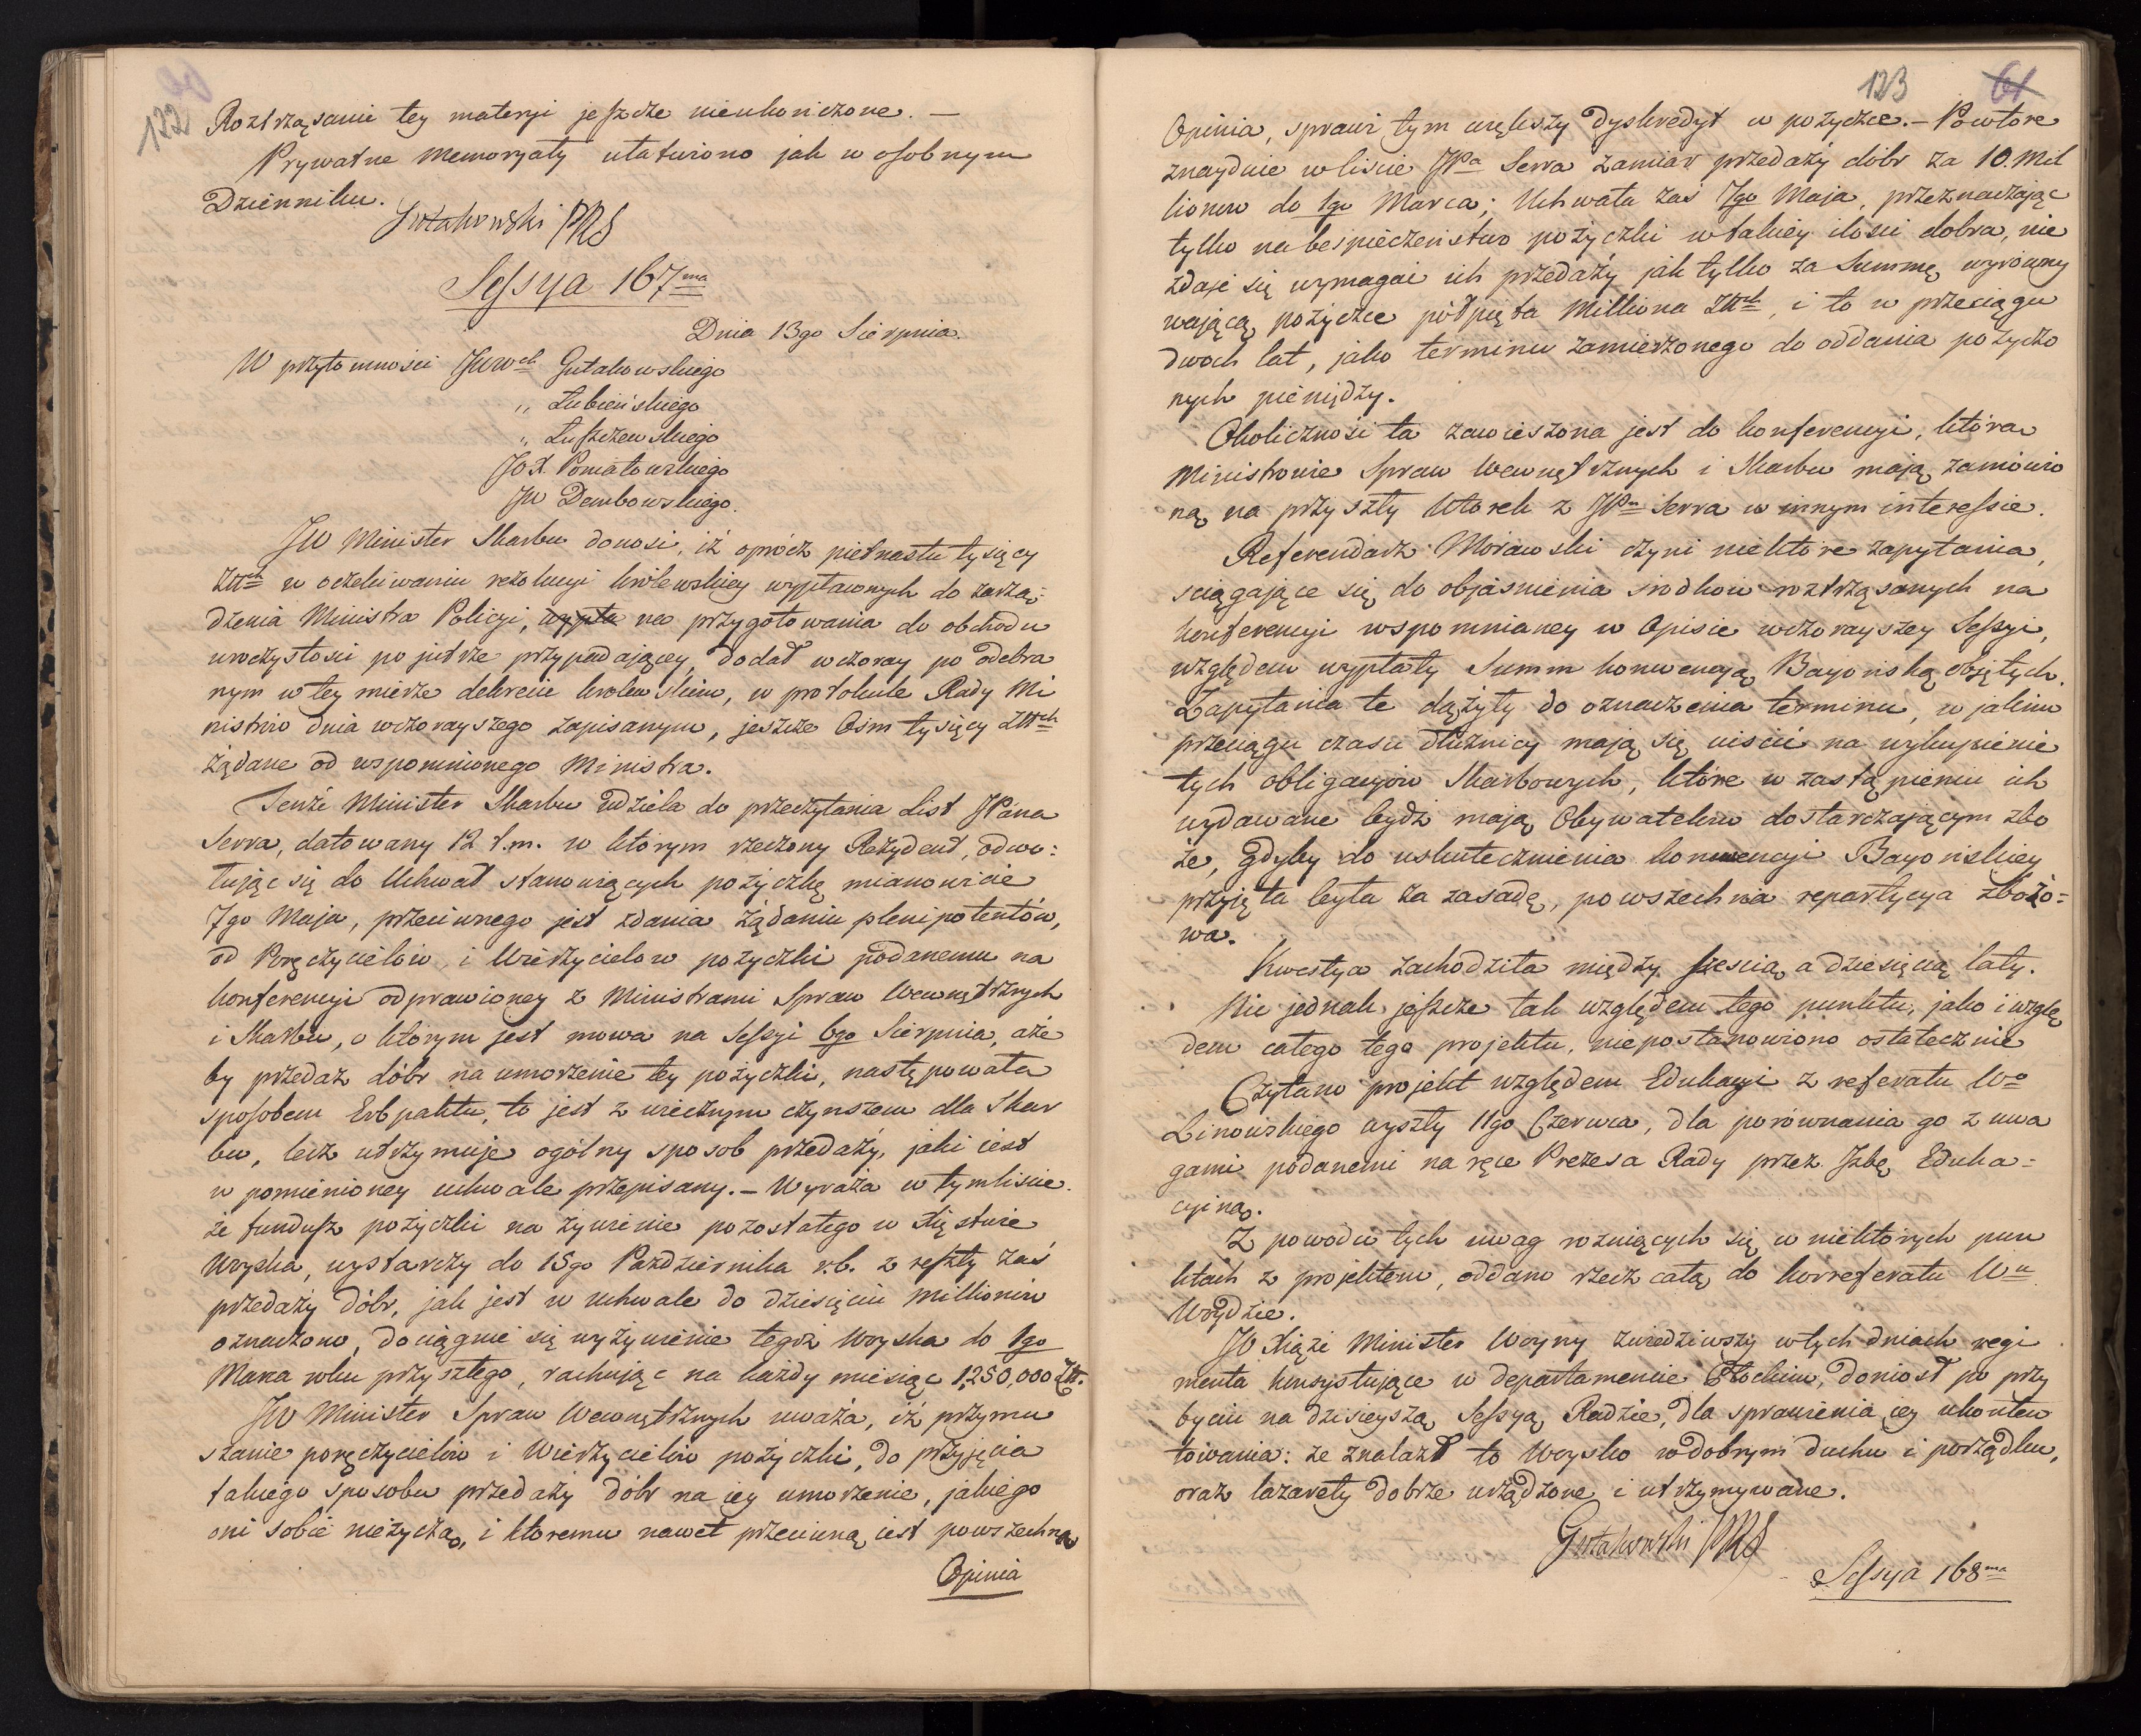 122
Roztrząsanie tey materyi jeszcze nieukończone. —
Prywatne memoryały ułatwiono jak w osobnym
Dzienniku.
Gutakowski PRS
Sessya 167ma
Dnia 13go Sierpnia.
W przytomności JWWch Gutakowskiego
" Łubieńskiego
" Łuszczewskiego
JOX. Poniatowskiego
JW Dembowskiego.
JW Minister Skarbu donosi, iż oprócz piętnastu tysięcy
Złłch w oczekiwaniu rezolucyi królewskiey wypłaconych do zarzą-
dzenia Ministra Policyi, wypła na przygotowania do obchodu
uroczystości pojutrze przypadającey, dodał wczoray po odebra
nym w tey mierze dekrecie królewskim, w protokule Rady Mi
nistrów dnia wczorayszego zapisanym, jeszcze Ośm tysięcy Złłch
żądane od wspomnionego Ministra.
Tenże Minister Skarbu udziela do przeczytania List JPana
Serra, datowany 12 t.m. w którym rzeczony Rezydent, odwo:
łując się do Uchwał stanowiących pożyczkę mianowicie
7go Maja, przeciwnego jest zdania żądaniu plenipotentów,
od Poręczycielów i Wierzycielow pożyczki podanemu na
konferencyi odprawioney z Ministrami Spraw Wewnętrznych
i Skarbu, o którym jest mowa na Sessyi 6go Sierpnia, aże
by przedaż dóbr na umorzenie tey pożyczki, następowała
sposobem Erbpaktu, to jest z wiecznym czynszem dla Skar
bu, lecz utrzymuje ogólny sposob przedaży, jaki iest
w pomienioney uchwale przepisany. — Wyraża w tym liscie
że fundusz pożyczki na żywienie pozostałego w Xięstwie
Woyska, wystarczy do 15go Października r.b. z reszty zaś
przedaży dóbr, jak jest w uchwale do dziesięciu millionów
oznaczono, dociągnie się wyżywienie tegoż Woyska do 1go
Marca roku przyszłego, rachując na każdy miesiąc 1,250,000 Złł.
JW Minister Spraw Wewnętrznych uważa, iż przymu
szanie poręczycielów i Wierzycielów pożyczki, do przyjęcia
takiego sposobu przedaży dóbr na iey umorzenie, jakiego
oni sobie nieżyczą, i ktoremu nawet przeciwną iest powszechna
Opinia
123
61
Opinia, sprawi tym większy dyskredyt w pożyczce. — Powtore
znayduie w liście JPa Serra zamiar przedaży dóbr za 10. Mil
lionów do 1go Marca; Uchwała zaś 7go Maja, przeznaczając
tylko na bespieczeństwo pożyczki w takiey ilości dobra, nie
zdaje się wymagać ich przedaży jak tylko za Summę wyrówny
wającą pożyczce półpięta Milliona Złłch, i to w przeciągu
dwoch lat, jako terminu zamierzonego do oddania pożyczo
nych pieniędzy.
Okoliczność ta zawieszona jest do konferencyi, która
Ministrowie Spraw Wewnętrznych i Skarbu mają zamówio
ną na przyszły Wtorek z JPm Serra w innym interessie.
Referendarz Morawski czyni niektóre zapytania,
sciągające się do objaśnienia srodków roztrząsanych na
konferencyi wspomnianey w Opisie wczorayszey Sessyi,
względem wypłaty Summ konwencyą Bayońską objętych.
Zapytania te dążyły do oznaczenia terminu, w jakim
przeciągu czasu dłużnicy mają się uiscić na wykupienie
tych obligacyów Skarbowych, które w zastąpieniu ich
wydawane bydź mają Obywatelom dostarczającym zbo
że, gdyby do uskutecznienia konwencyi Bayońskiey
przyjęta była za zasadę, powszechna repartycya zbożo=
wa.
Kwestya zachodziła między sześcią a dziesięcią laty.
Nic jednak jeszcze tak względem tego punktu, jako i wzglę
dem całego tego projektu, niepostanowiono ostatecznie
Czytano projekt względem Edukacyi z referatu Wo
Linowskiego wyszły 11go Czerwca, dla porównania go z uwa
gami podanemi na ręce Prezesa Rady przez Izbę Eduka=
cyiną.
Z powodu tych uwag rozniących się w niektórych pun
ktach z projektem, oddano rzecz całą do korreferatu Wu
Woydzie.
JO Xiąże Minister Woyny zwiedziwszy w tych dniach regi
menta konsystujące w departamencie Płockim, doniosł po przy
byciu na dzisieyszą Sessyą Radzie, dla sprawienia iey ukonten
towania: że znalazł to Woysko w dobrym duchu i porządku,
oraz lazarety dobrze urządzone i utrzymywane.
Gutakowski PRS
Sessya 168ma